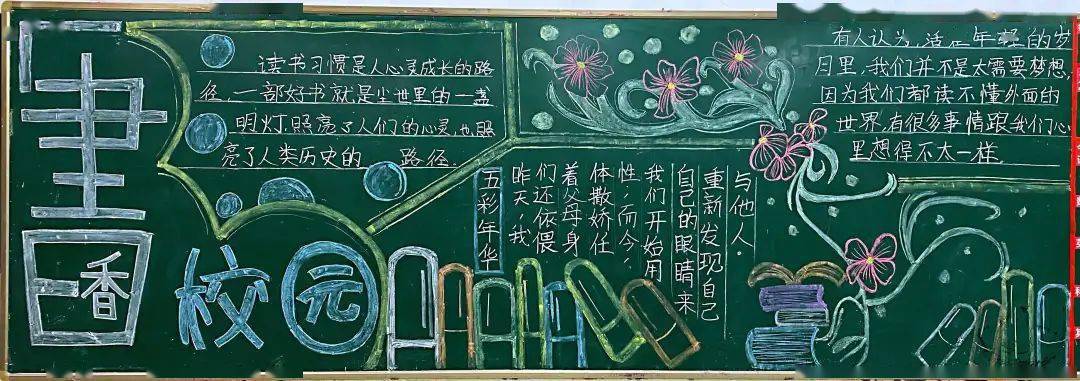 書香
校园
读书习惯是人心灵成长的路
径,一部好书就是尘世里的一盏
明灯,照亮了人们的心灵,也照
亮了人类历史的 路径.
五彩年华
昨天,我
们还依偎
着父母身
体撒娇任
性,而今,
我们开始用
自己的眼睛来
重新发现自己
与他人.
有人认为,活在年轻的岁
月里,我们并不是太需要梦想,
因为我们都读不懂外面的
世界,有很多事情跟我们心
里想得不太一样.